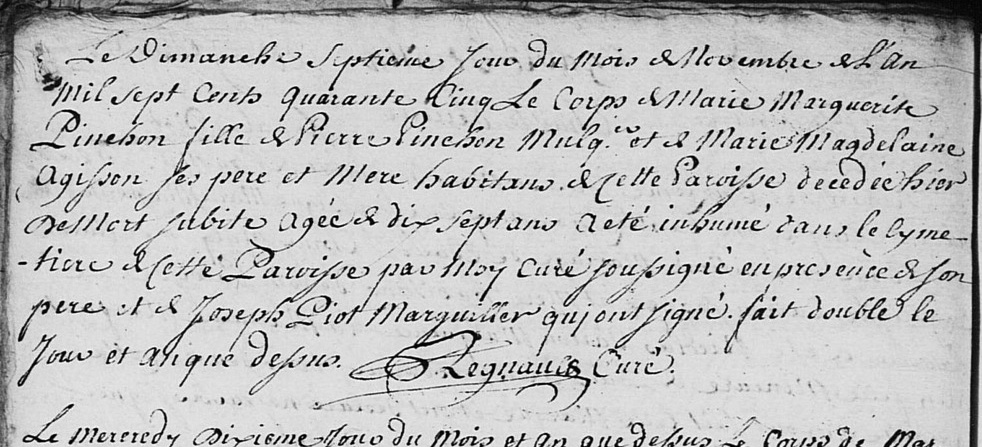 Le Dimanche septieme Jour du Mois de Novembre de L'An
Mil sept Cents quarante Cinq Le Corps de Marie Marguerite
Pinchon fille de Pierre Pinchon Mulq.er et de Marie Magdelaine
Agisson ses pere et Mere habitans de Cette Paroisse decedée hier
De Mort subite agée de dix sept ans a eté inhumé dans le Cyme-
-tiere de Cette Paroisse par Moy Curé soussigné en presence de son
pere et de Joseph Piot Marguiller qui ont signé. fait double le
Jour et an que dessus. Regnault Curé.
Le Mercredy Dixieme Jour du Mois et an que dessus Le Corps de Mar